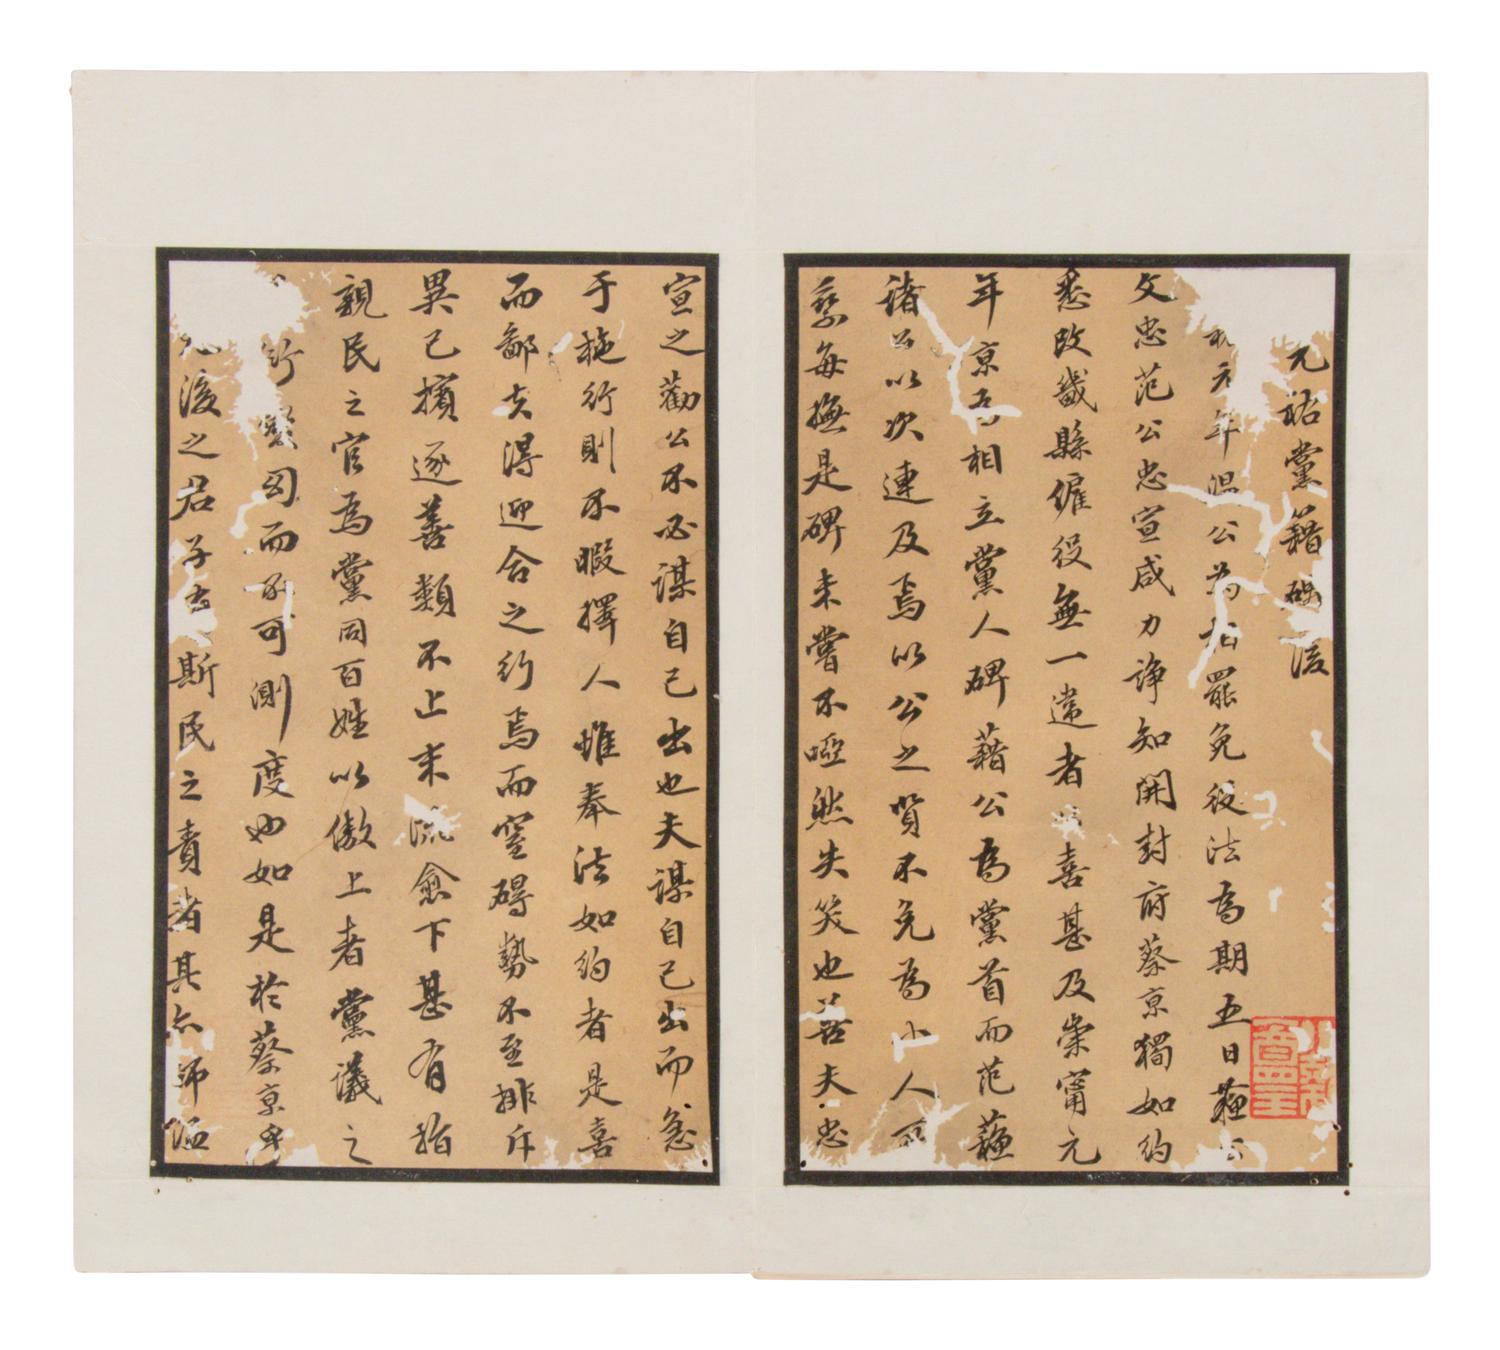 元祐黨籍碑後
元年溫公為相罷免役法為期五日蘇公
文忠范公忠宣咸力諍知開封府蔡京獨如約
悉改畿縣僱役無一違者喜甚及崇甯元
年京為相立黨人碑藉公為黨首而范蘇
諸公以次連及焉以公之賢不免為小人所
弄每撫是碑未嘗不啞然失笑也蓋夫忠
宣之勸公不必謀自己出也夫謀自己出而急
于施行則不暇擇人惟奉法如約者是喜
而鄙夫得迎合之行焉而窒碍勢不至排斥
異己擯逐善類不止末流愈下甚有指
親民之官為黨同百姓以傲上者黨議之
行變幻而不可測度也如是於蔡京
後之君子有斯民之責者其亦師